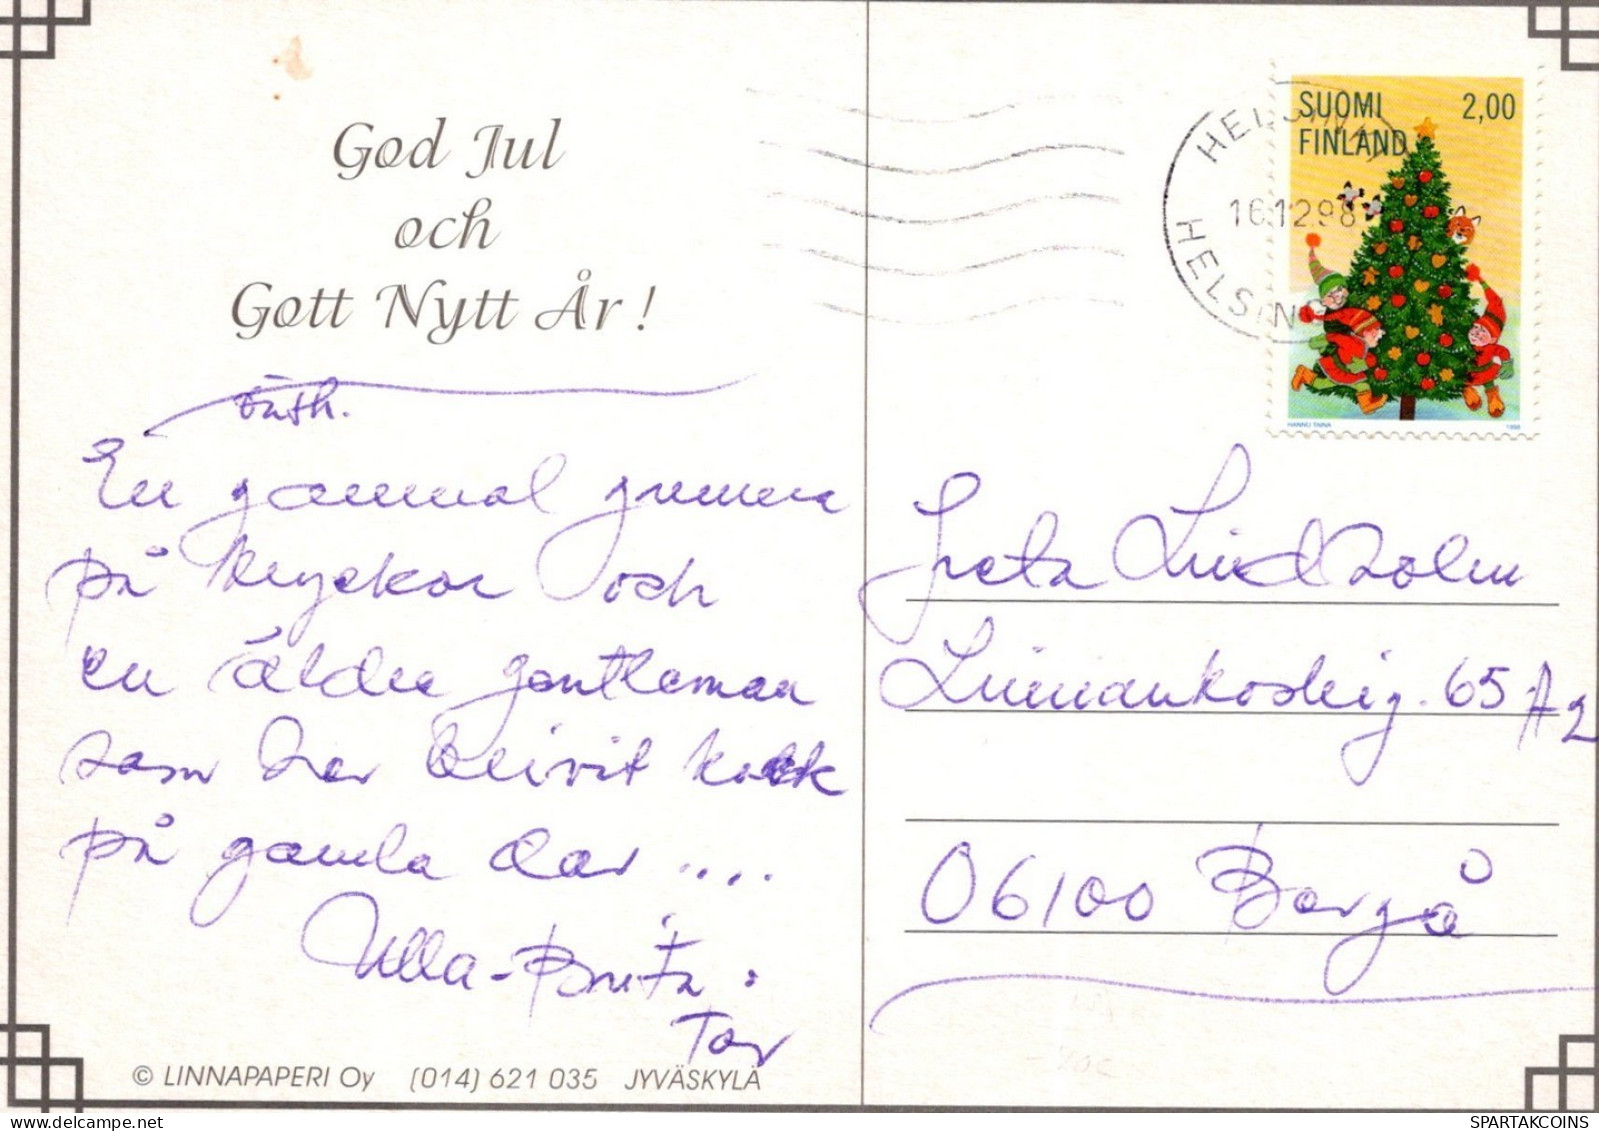 God Jul
och
Gott Nytt År!
önsk.
En gammal gumma
på kryckor och
en äldre gentleman
som har blivit kock
på gamla dar ....
Ulla-Brita
Tor
© LINNAPAPERI Oy (014) 621 035 JYVÄSKYLÄ
SUOMI 2,00
FINLAND
HELSINKI
16.12.98
HELSIN
HANNU TAINA 1998
Greta Lindholm
65 A 2
06100 Borgå
SPARTAKCOINS